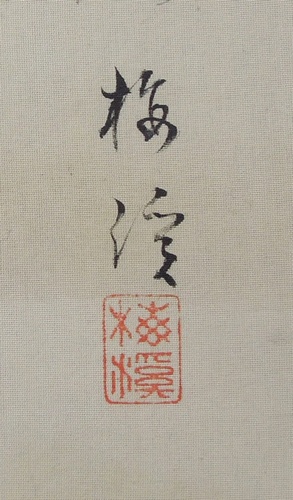 梅溪
梅溪